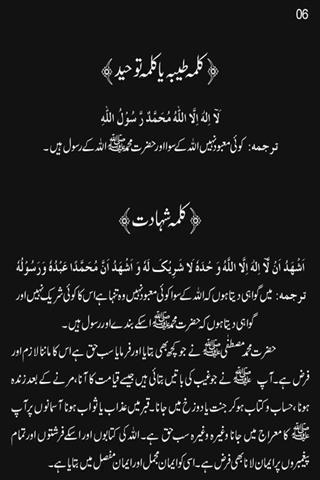 06
﴿ کلمہ طیبہ یا کلمہ توحید ﴾
لَآ اِلٰهَ اِلَّا اللّٰهُ مُحَمَّدٌ رَّسُوْلُ اللّٰهِ
ترجمہ: کوئی معبود نہیں اللہ کے سوا اور حضرت محمد ﷺ اللہ کے رسول ہیں ۔
﴿ کلمہ شہادت ﴾
اَشْهَدُ اَنْ لَّآ اِلٰهَ اِلَّا اللّٰهُ وَحْدَهٗ لَا شَرِيْكَ لَهٗ وَ اَشْهَدُ اَنَّ مُحَمَّدًا عَبْدُهٗ وَرَسُوْلُهٗ
ترجمہ: میں گواہی دیتا ہوں کہ اللہ کے سوا کوئی معبود نہیں وہ تنہا ہے اس کا کوئی شریک نہیں اور
گواہی دیتا ہوں کہ حضرت محمد ﷺ اسکے بندے اور رسول ہیں ۔
حضرت محمد مصطفٰی ﷺ نے جو کچھ بھی بتایا اور فرمایا سب حق ہے اس کا ماننا لازم اور
فرض ہے۔ آپ ﷺ نے جو غیب کی باتیں بتائی ہیں جیسے قیامت کا آنا، مرنے کے بعد زندہ
ہونا، حساب و کتاب ہو کر جنت یا دوزخ میں جانا۔ قبر میں عذاب یا ثواب ہونا آسمانوں پر آپ
ﷺ کا معراج میں جانا وغیرہ وغیرہ سب حق ہے۔ اللہ کی کتابوں اور اسکے فرشتوں اور تمام
پیغمبروں پر ایمان لانا بھی فرض ہے۔ اسی کو ایمان مجمل اور ایمان مفصل میں بتایا ہے۔